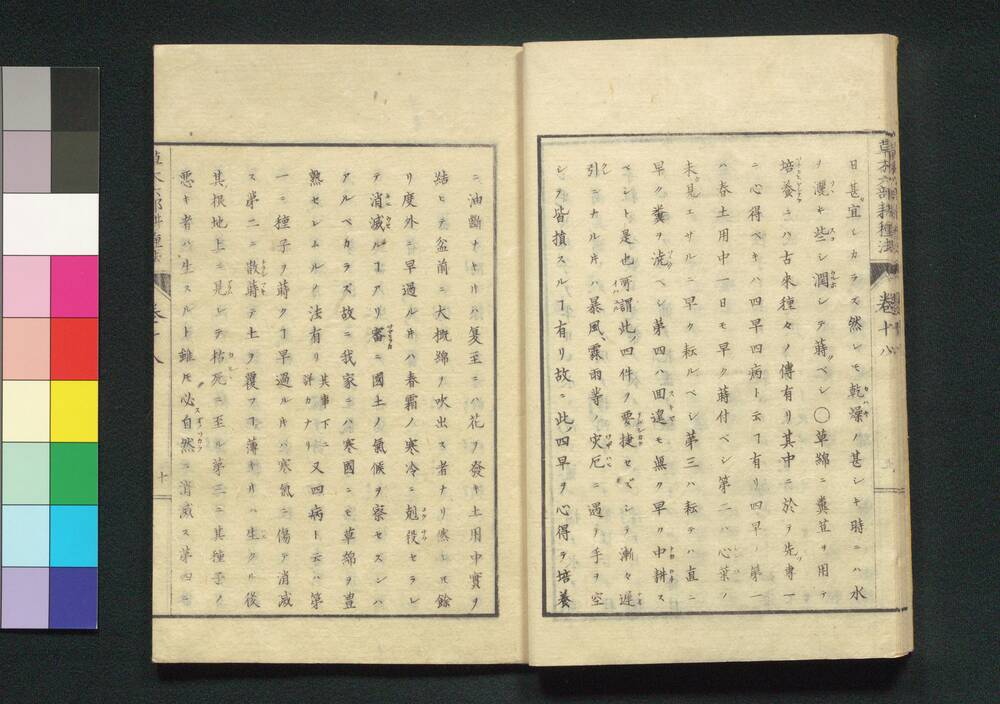 草木六部耕種法 卷十八
日甚宜シカラズ然レモ乾燥ノ甚シキ時ニハ水
ヲ灑キ些シ潤シテ蒔ベシ〇草綿ニ糞苴ヲ用テ
培養ニハ古來種々ノ傳有リ其中ニ於テ先專一
ニ心得ベキハ四早四病ト云ヿ有リ四早ノ第一
ハ春土用中一日モ早ク蒔付ベシ第二ハ心葉ノ
未見エサルニ早ク耘ルベシ第三ハ耘テハ直ニ
早ク糞ヲ澆ベシ第四ハ回違モ無ク早ク中耕ス
ベシト是也可謂此四件ノ要捷セズシテ漸々遲
引ニナル片ハ暴風霖雨等ノ灾厄ニ過テ手ヲ空
シヲ皆損スルヿ有リ故ニ此四早ヲ心得テ培養
ニ油斷ナキ片ハ夏至ニハ花ヲ發キ土用中實ヲ
結ヒテ盆前ニ大概綿ノ吹出ス者ナリ然レ𪜈餘
リ度外ニ早過ル片ハ春霜ノ寒冷ニ剋役セラレ
テ消滅ルヿアリ審ニ國土ノ氣候ヲ察セスンハ
アルベカラズ故ニ我家ニハ寒國ニモ草綿ヲ豊
熟セレムルノ法有リ其事下ニ詳カナリ又四病ト云ハ第
一ニ種子ヲ蒔クヿ早過ル片ハ寒氣ニ傷テ消滅
ス第二ニ散蒔テ土ヲ覆フヿ薄キ片ハ生クル後
其根地上ニ見レテ枯死ニ至ル第三ニ其種子ノ
悪キ者ハ生スルト雖𪜈必自然ニ消滅ス第四ニ
十